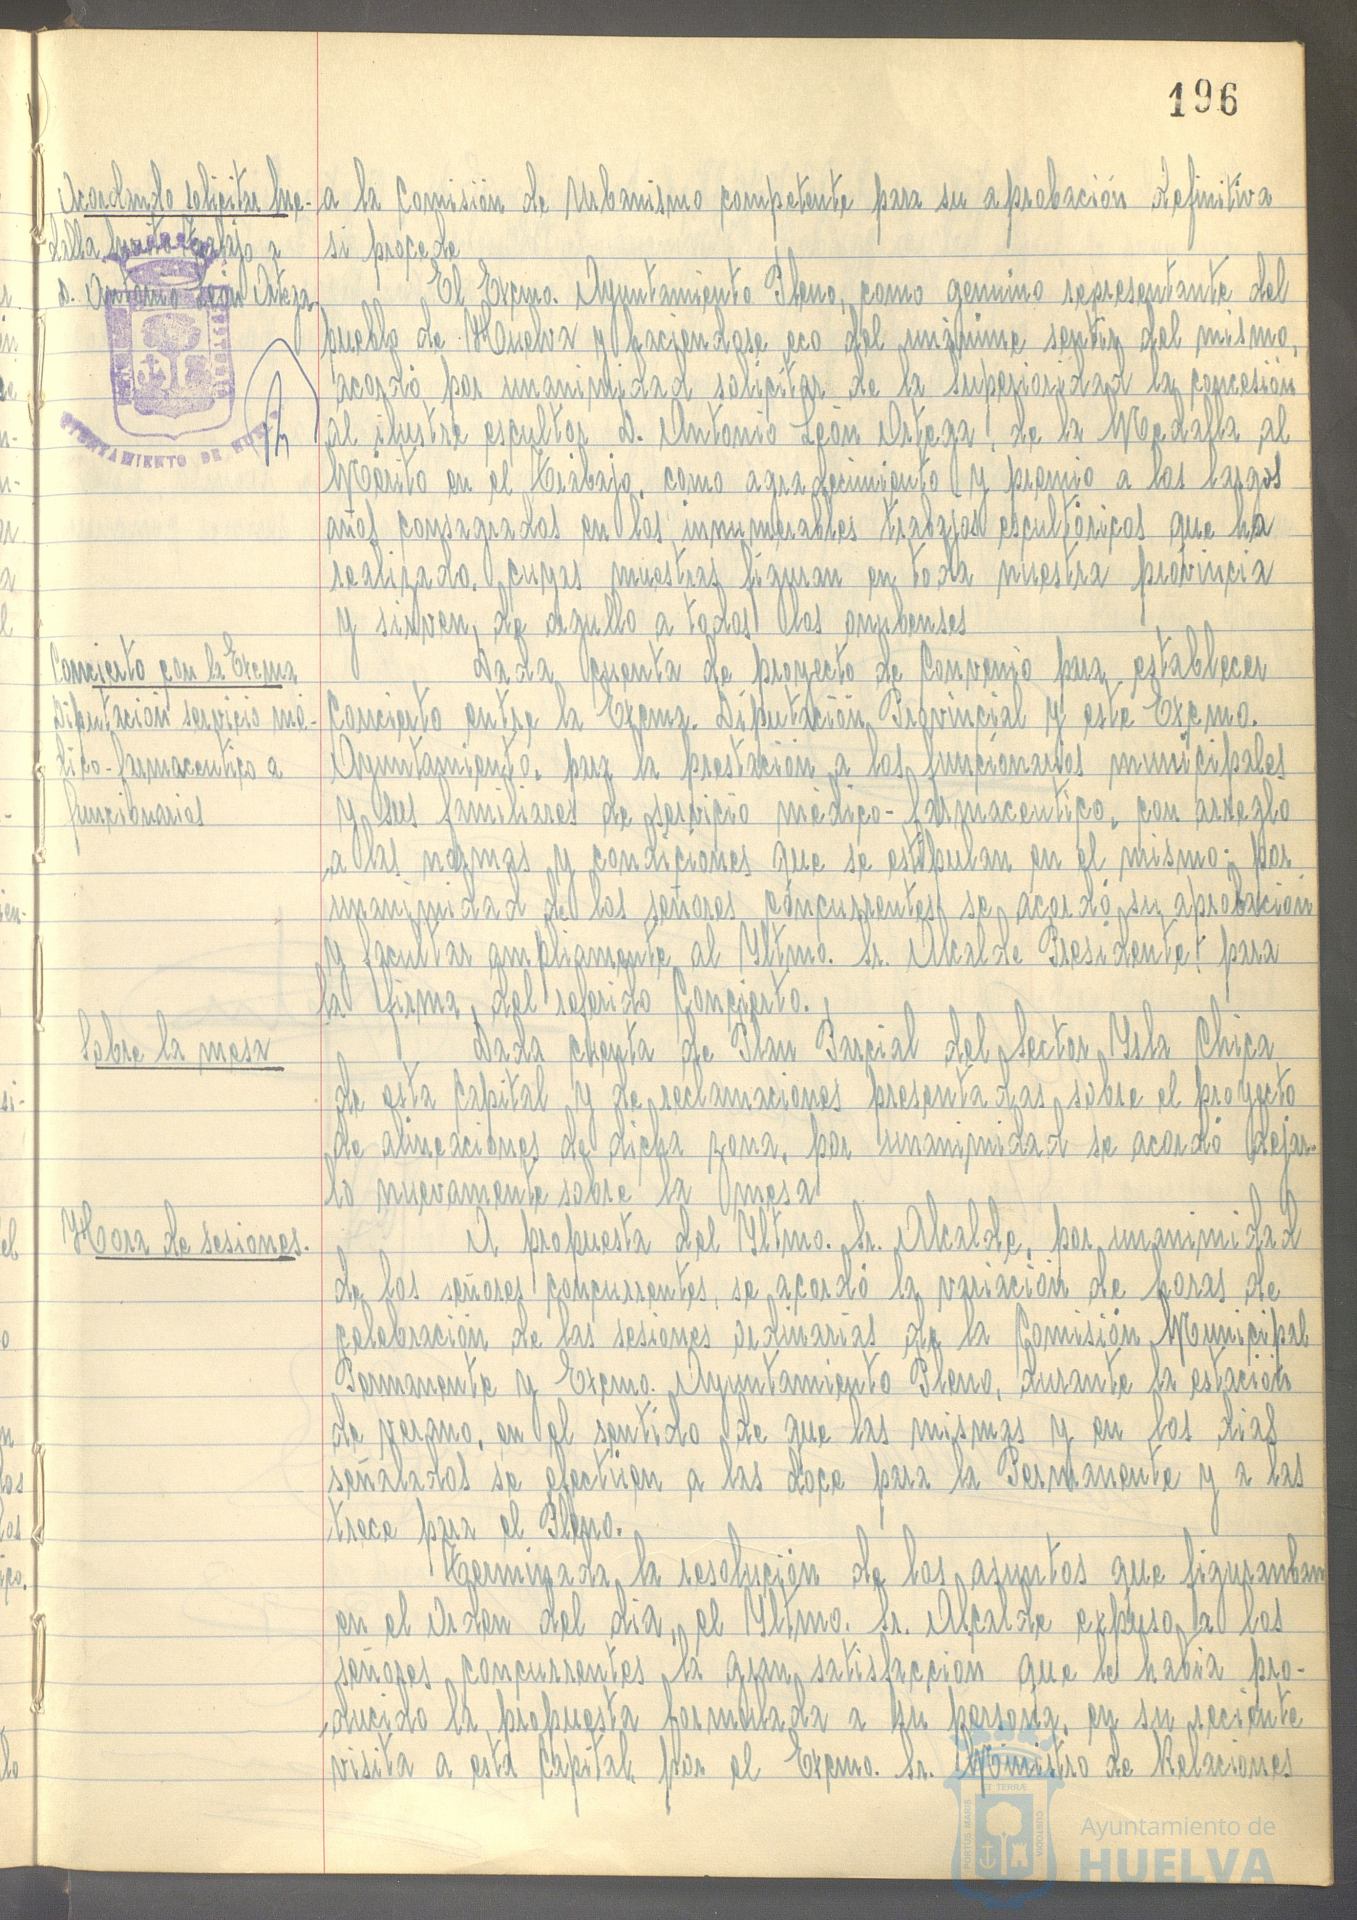 196
Acordando solicitar Me-
dalla Mérito Trabajo a
D. Antonio León Ortega
a la Comisión de Urbanismo competente para su aprobación definitiva
si procede
El Excmo. Ayuntamiento Pleno, como genuino representante del
pueblo de Huelva y haciendose eco del unánime sentir del mismo,
acordó por unanimidad solicitar de la Superioridad la concesión
al ilustre escultor D. Antonio León Ortega, de la Medalla al
Mérito en el Trabajo, como agradecimiento y premio a los largos
años consagrados en los innumerables trabajos escultóricos que ha
realizado, cuyas muestras figuran en toda nuestra provincia
y sirven, de orgullo a todos los onubenses
AYUNTAMIENTO DE HUELVA
Concierto con la Excma
Diputación servicio mé-
dico-farmaceutico a
funcionarios
Dada cuenta de proyecto de Convenio para establecer
Concierto entre la Excma. Diputación Provincial y este Excmo.
Ayuntamiento, para la prestación a los funcionarios municipales
y sus familiares de servicio médico-farmaceutico, con arreglo
a las normas y condiciones que se estipulan en el mismo; por
unanimidad de los señores concurrentes se acordó su aprobación
y facultar ampliamente al Yltmo. Sr. Alcalde Presidente, para
la firma del referido Concierto.
Sobre la mesa
Dada cuenta de Plan Parcial del Sector Ysla Chica
de esta Capital y de reclamaciones presentadas sobre el proyecto
de alineaciones de dicha zona, por unanimidad se acordó dejar-
lo nuevamente sobre la mesa
Hora de sesiones.
A propuesta del Yltmo. Sr. Alcalde, por unanimidad
de los señores concurrentes, se acordó la variación de horas de
celebración de las sesiones ordinarias de la Comisión Municipal
Permanente y Excmo. Ayuntamiento Pleno, durante la estación
de verano, en el sentido de que las mismas y en los dias
señalados se efectúen a las doce para la Permanente y a las
trece para el Pleno.
Terminada la resolución de los asuntos que figuranban
en el Orden del dia, el Yltmo. Sr. Alcalde expuso a los
señores concurrentes la gran satisfacción que le habia pro-
ducido la propuesta formulada a su persona, en su reciente
visita a esta Capital, por el Excmo. Sr. Ministro de Relaciones
PORTUS MARIS ET TERRÆ CUSTODIA
Ayuntamiento de
HUELVA